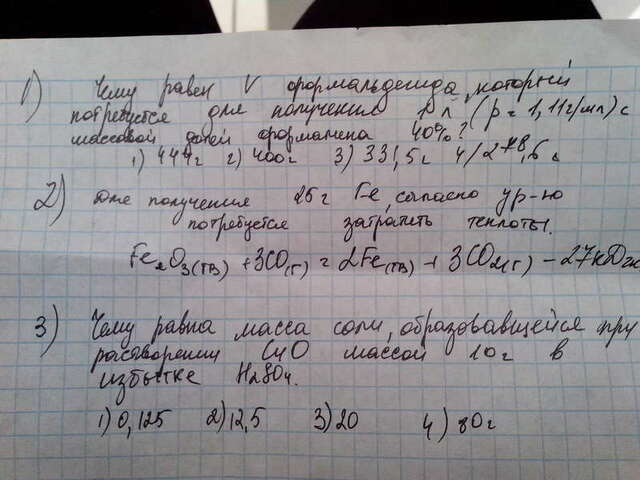 1) Чему равен V формальдегида, который
потребуется для получения 1 л (ρ = 1,11г/мл) с
массовой долей формалина 40%?
1) 444г 2) 400г 3) 331,5г 4) 278,6 г
2) Для получения 26 г Fe, согласно ур-ю
потребуется затратить теплоты.
Fe₂O₃(тв) + 3CO(г) = 2Fe(тв) + 3CO₂(г) - 27 кДж
3) Чему равна масса соли, образовавшейся при
растворении CuO массой 10 г в
избытке H₂SO₄.
1) 0,125 2) 12,5 3) 20 4) 80г